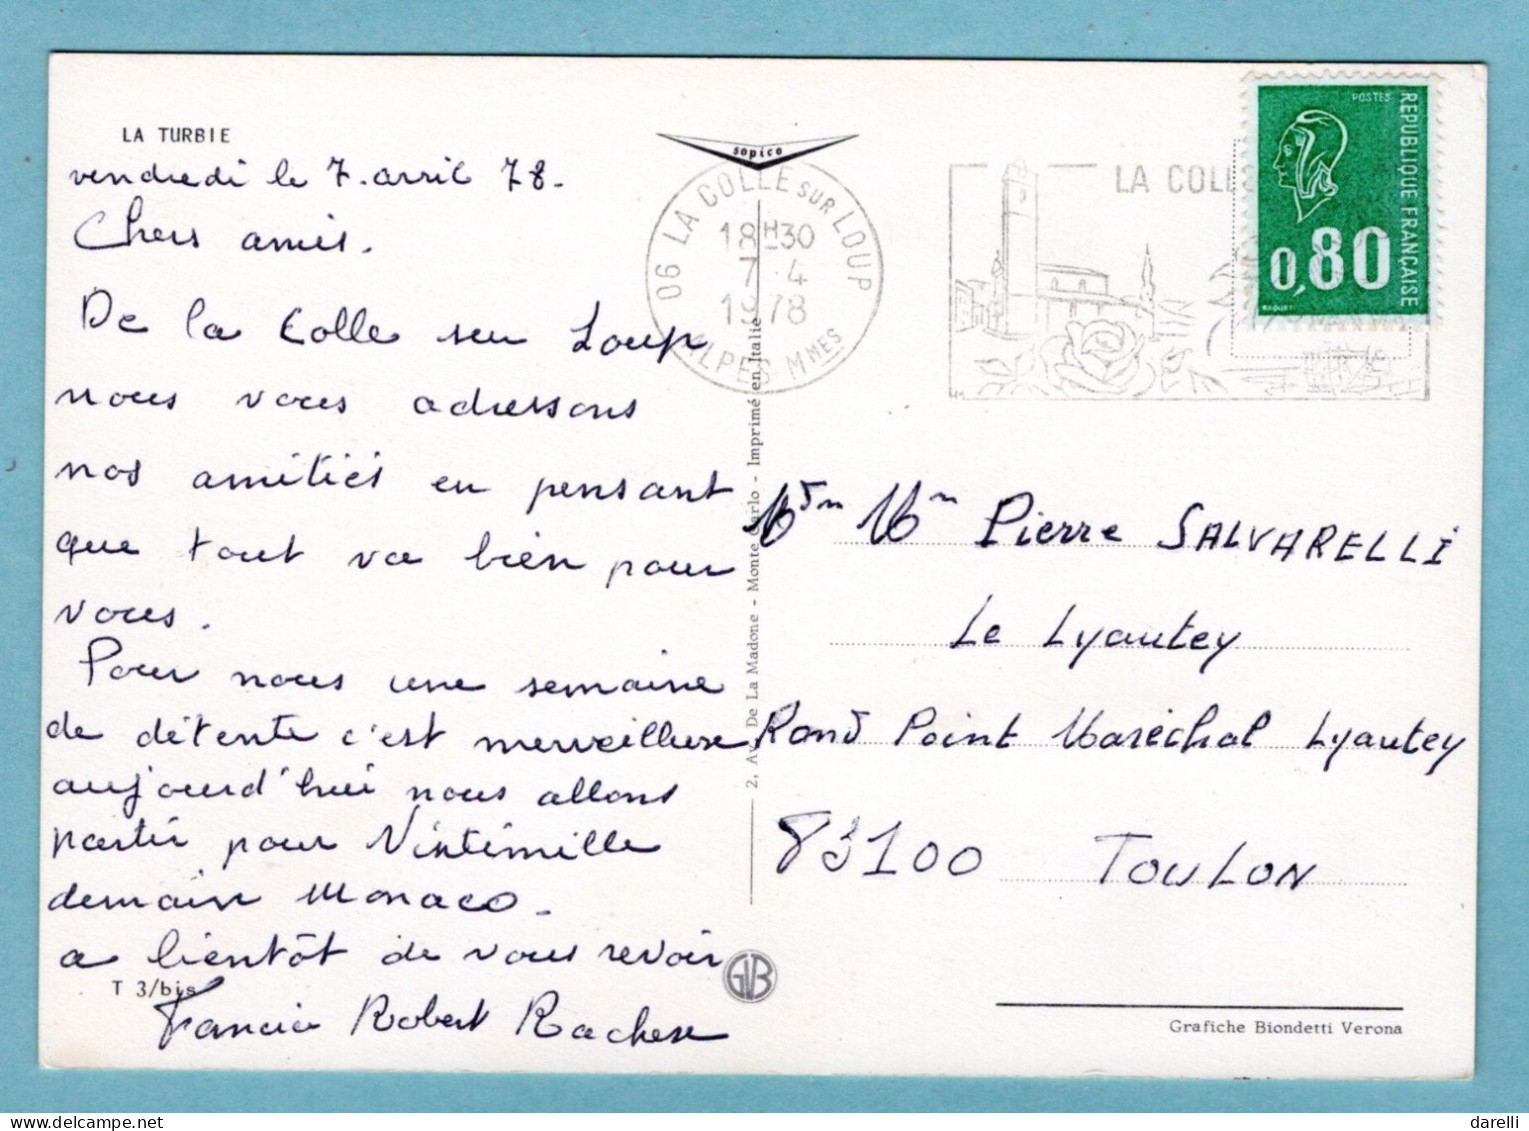 LA TURBIE
vendredi le 7. avril 78.
Chers amis.
De la Colle sur Loup
nous vous adressons
nos amitiés en pensant
que tout va bien pour
vous.
Pour nous une semaine
de détente c'est merveilleux
aujourd'hui nous allons
partir pour Vintimille
demain Monaco.
a bientôt de vous revoir
T 3/bis
Francis Robert
sopico
06 LA COLLE SUR LOUP
18H30
7 4
1978
ALPES MMES
2, Av. De La Madone - Monte Carlo - Imprimé en Italie
GVB
LA COLL
POSTES
REPUBLIQUE FRANÇAISE
0,80
BEQUET
Pierre SALVARELLI
Le Lyautey
Rond Point Maréchal Lyautey
83100 TOULON
Grafiche Biondetti Verona
darelli